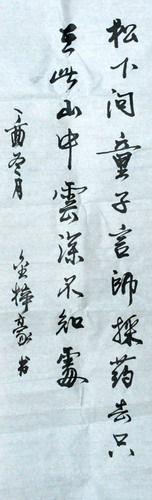 松下问童子言師採药去只
在此山中雲深不知處
丁酉冬月
金樺豪书